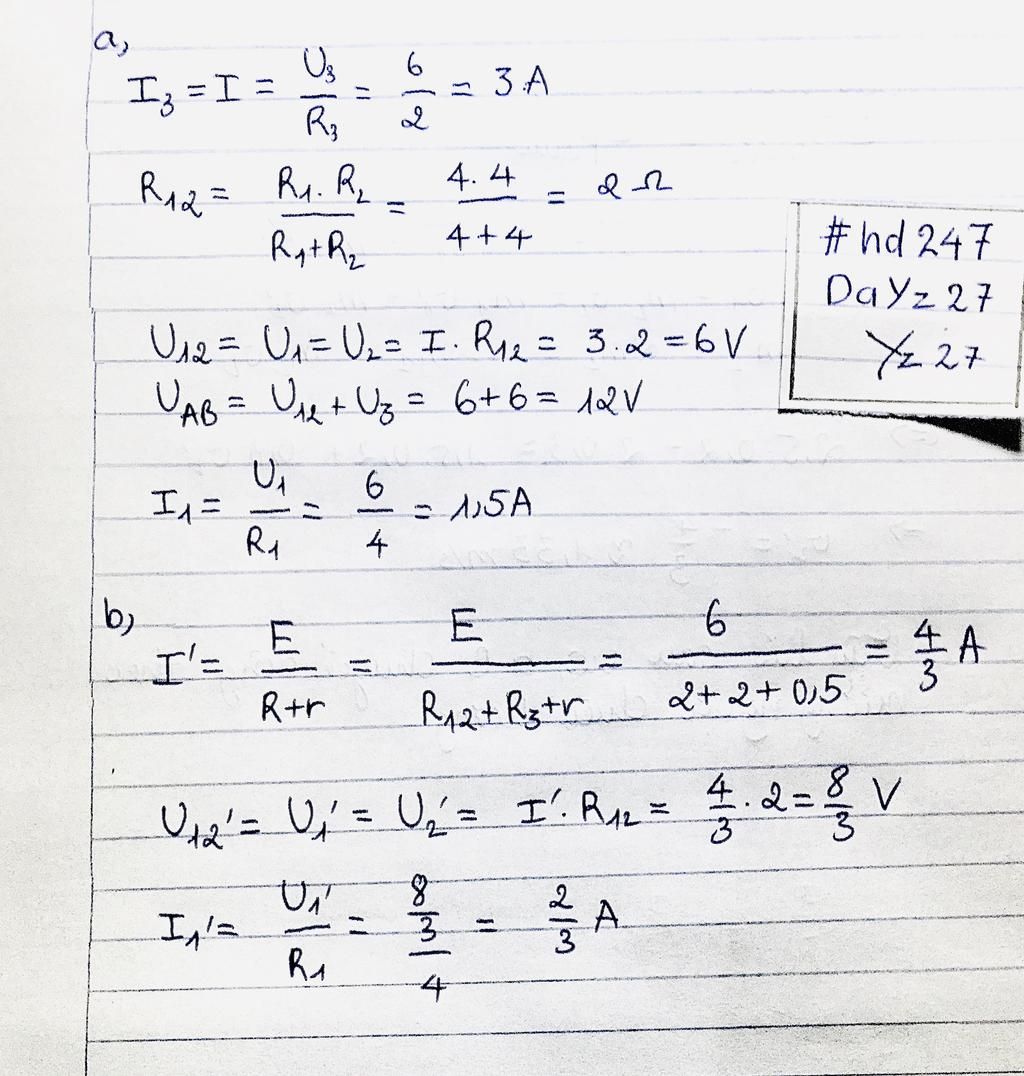 a,
I₃ = I = U₃/R₃ = 6/2 = 3 A
R₁₂ = (R₁ . R₂)/(R₁+R₂) = (4. 4)/(4+4) = 2 Ω
#hd247
DaYz27
Yz27
U₁₂ = U₁ = U₂ = I . R₁₂ = 3.2 = 6 V
U_AB = U₁₂ + U₃ = 6+6 = 12V
I₁ = U₁/R₁ = 6/4 = 1,5A
b,
I' = E/(R+r) = E/(R₁₂+R₃+r) = 6/(2+2+0,5) = 4/3 A
U₁₂' = U₁' = U₂' = I'. R₁₂ = 4/3 . 2 = 8/3 V
I₁' = U₁'/R₁ = (8/3)/4 = 2/3 A